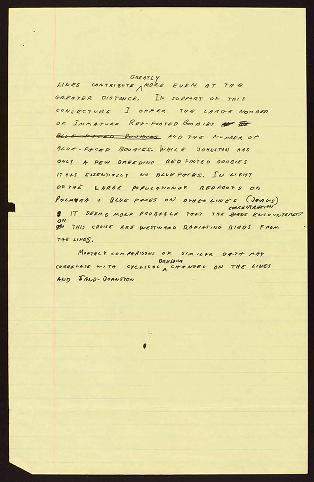 GREATLY
LINES CONTRIBUTE MORE EVEN AT THE
GREATER DISTANCE. IN SUPPORT OF THIS
CONJECTURE I OFFER THE LARGE NUMBER
OF IMMATURE RED-FOOTED BOOBIES
BLUE-FACED BOOBIES AND THE NUMBER OF
BLUE-FACED BOOBIES. WHILE JOHNSTON HAS
ONLY A FEW BREEDING RED FOOTED BOOBIES
IT HAS ESSENTIALLY NO BLUE FACES. IN LIGHT
OF THE LARGE POPULATIONS REDFOOTS ON
PALMYRA & BLUE FACES ON OTHER LINES (JARVIS)
CONCENTRATION
IT SEEMS MORE PROBABLE THAT THE ENCOUNTERED
ON
THIS CRUISE ARE WESTWARD RADIATING BIRDS FROM
THE LINES.
MONTHLY COMPARISONS OF SIMILAR DATA MAY
BREEDING
CORRELATE WITH CYCLICAL CHANGES ON THE LINES
AND JOHNSTON